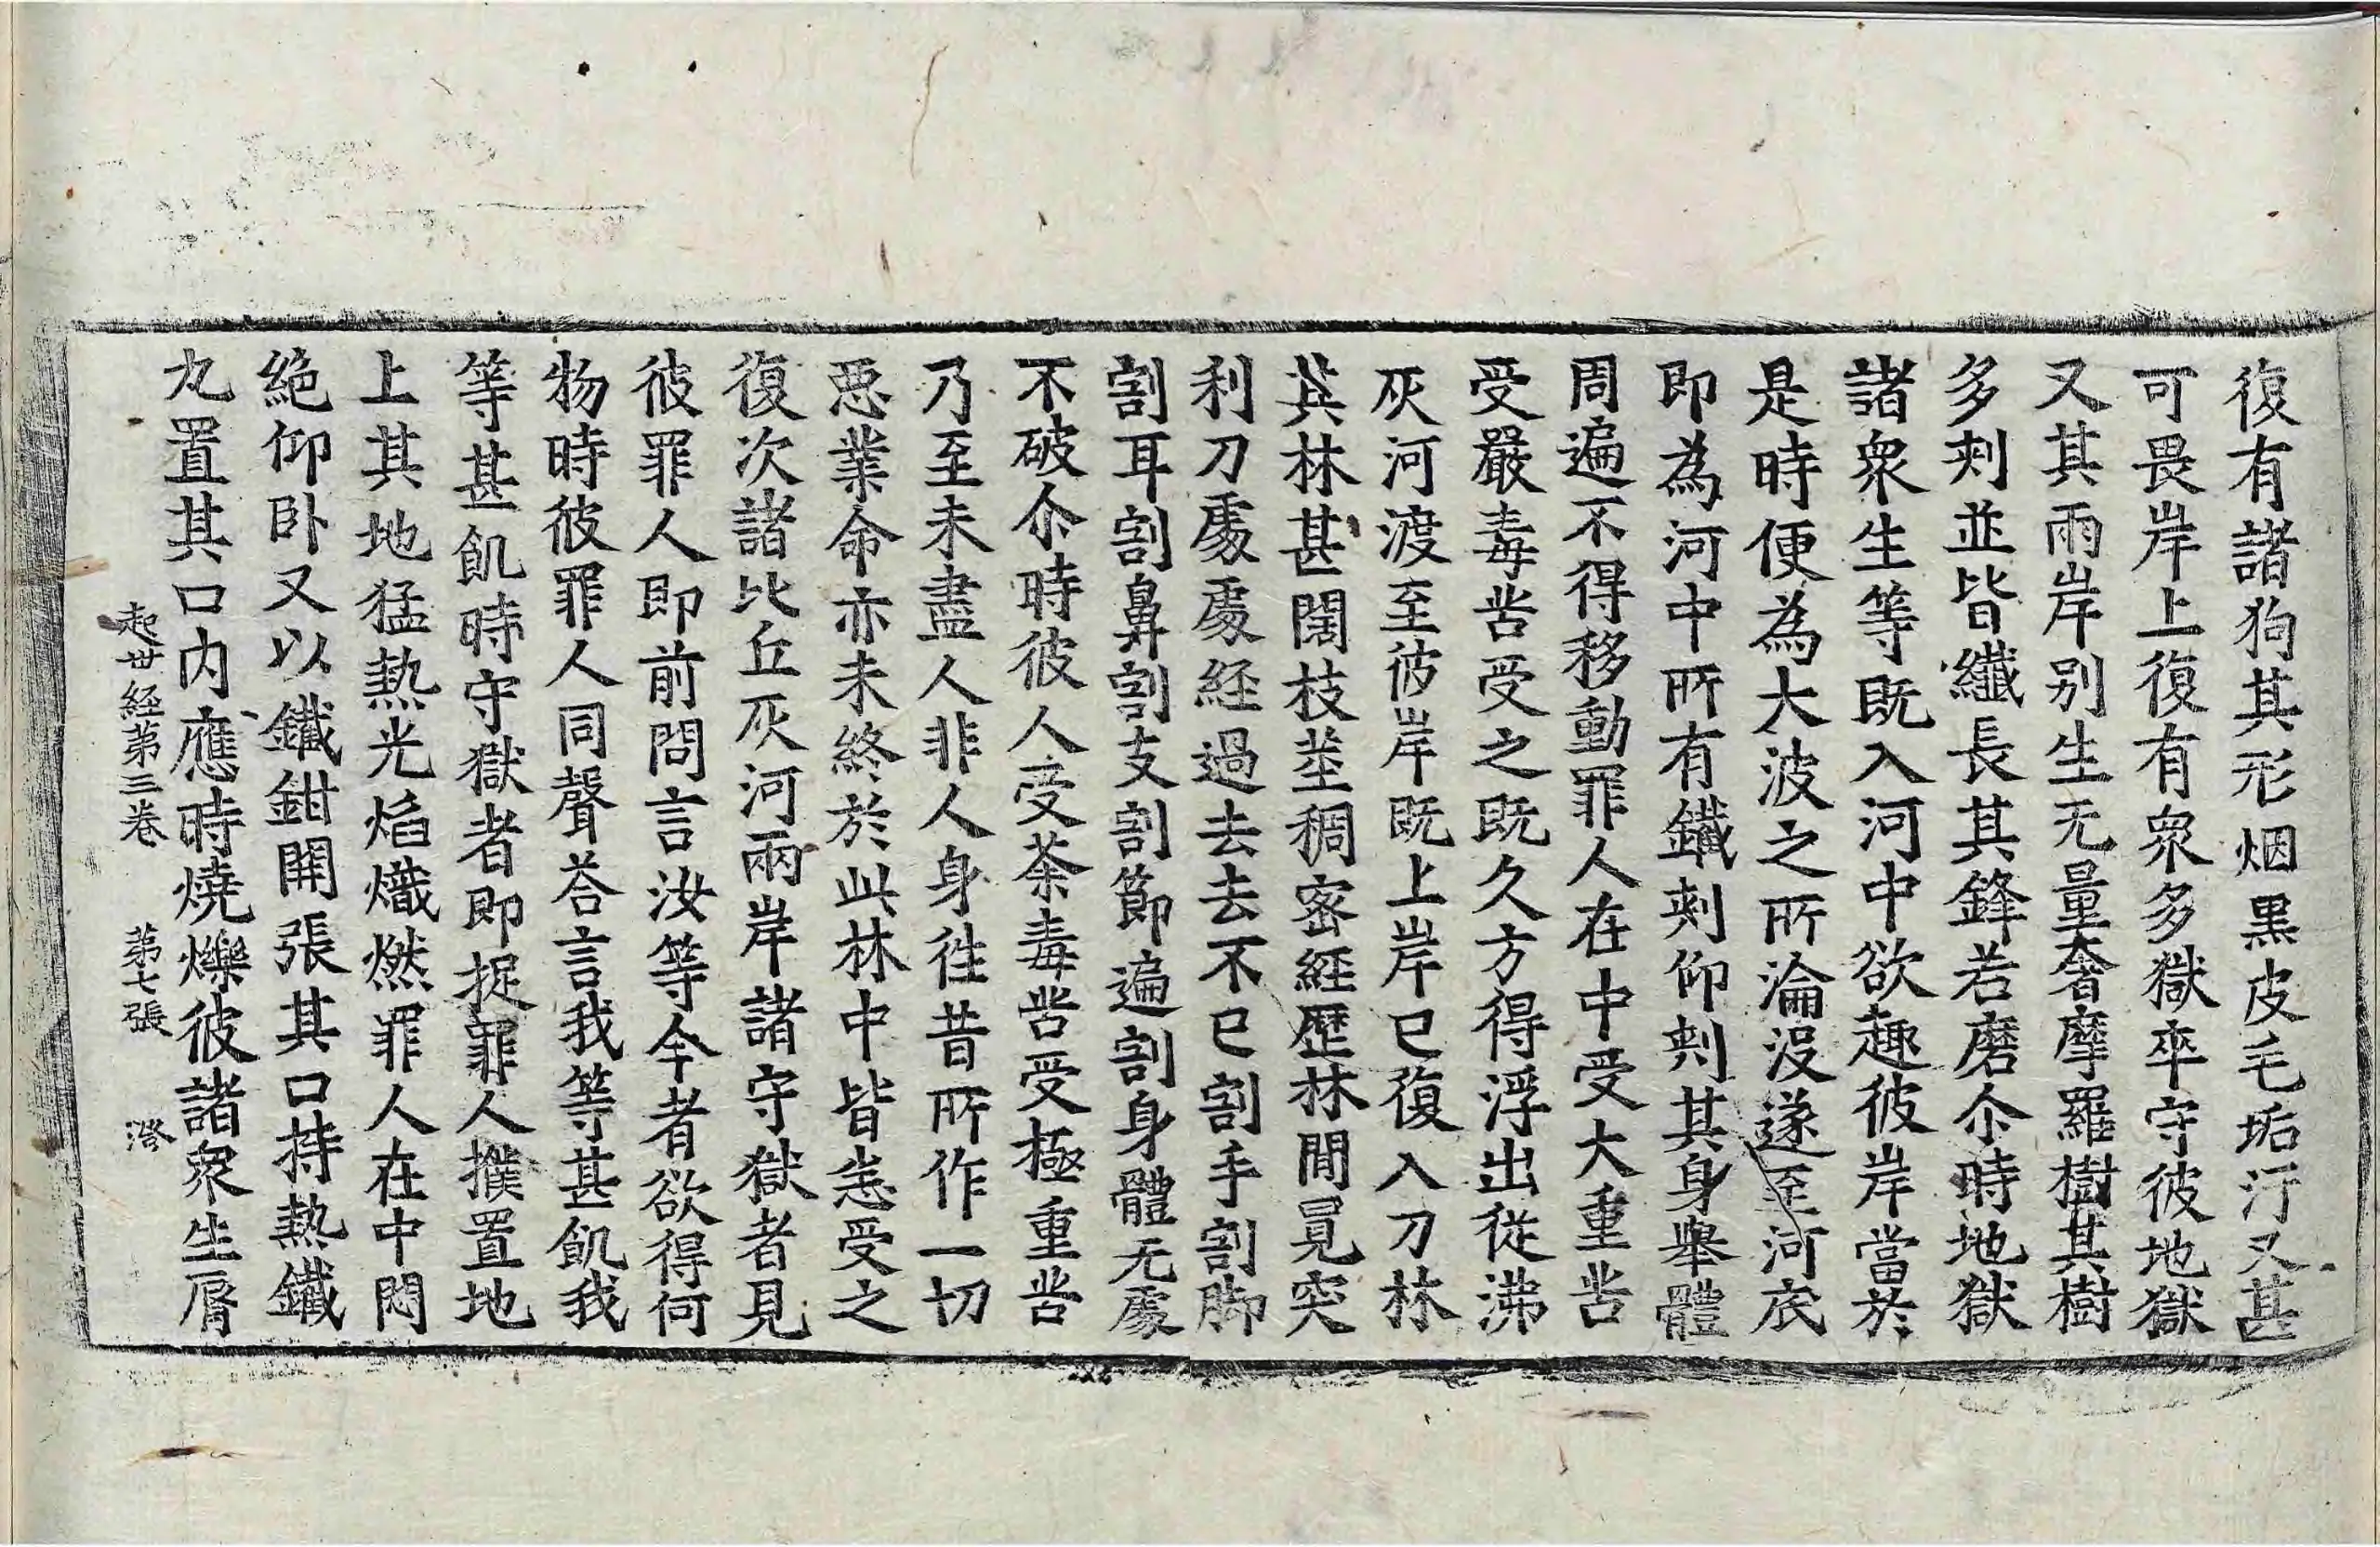 復有諸狗其形烟黒皮毛垢汙又甚
可畏岸上復有衆多獄卒守彼地獄
又其兩岸别生无量奢摩羅樹其樹
多刾並皆纖長其鋒若磨尒時地獄
諸衆生等既入河中欲趣彼岸當於
是時便為大波之所淪没遂至河底
即為河中所有鐵刾仰刾其身舉體
周遍不得移動罪人在中受大重苦
受嚴毒苦受之既久方得浮出從沸
灰河渡至彼岸既上岸已復入刀林
其林甚闊枝莖稠密經歷林間冐突
利刀處處経過去去不已割手割脚
割耳割鼻割支割節遍割身體无處
不破尒時彼人受荼毒苦受極重苦
乃至未盡人非人身徃昔所作一切
惡業命亦未終於此林中皆悉受之
復次諸比丘灰河兩岸諸守獄者見
彼罪人即前問言汝等今者欲得何
物時彼罪人同聲荅言我等甚飢我
等甚飢時守獄者即捉罪人撲置地
上其地猛熱光焰熾燃罪人在中悶
絶仰卧又以鐵鉗開張其口持熱鐵
丸置其口内應時燒爍彼諸衆生脣
起世経第三卷 第七張 澄